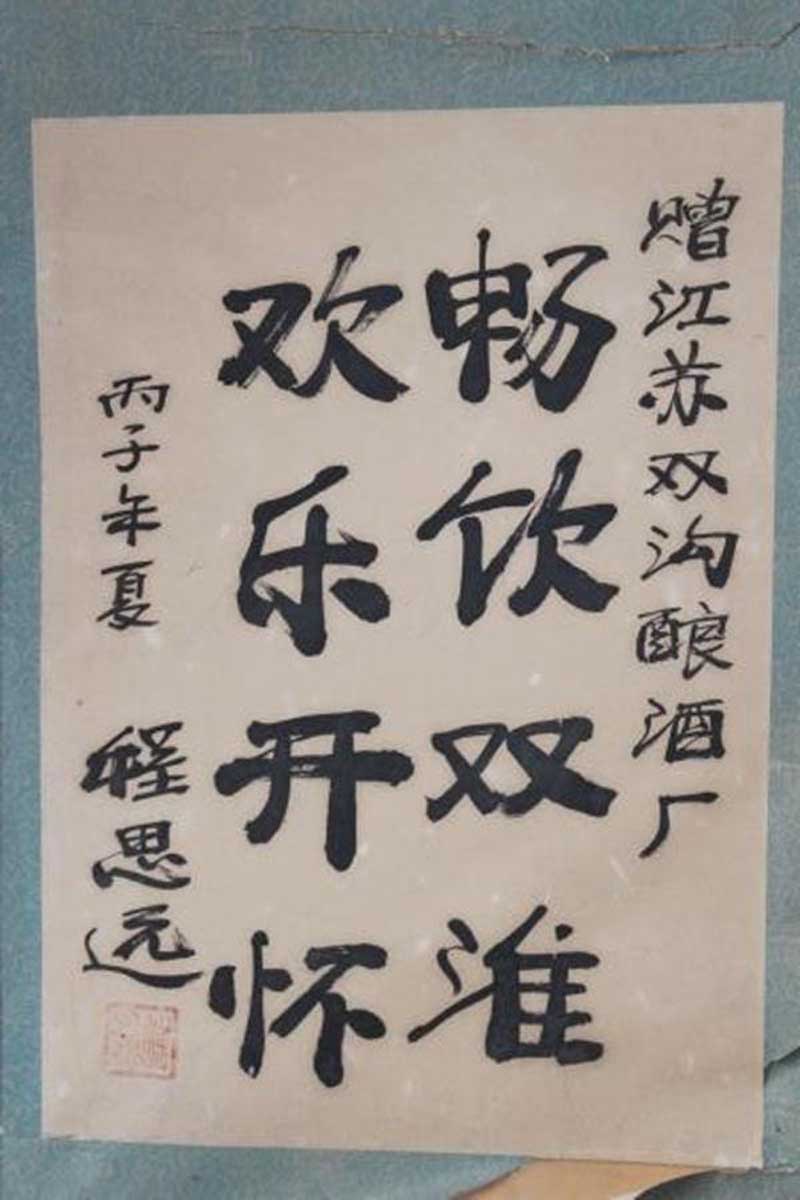 赠江苏双沟酿酒厂
畅饮双淮
欢乐开怀
丙子年夏
程思远